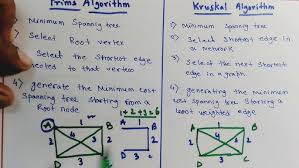 Prims Algorithm
Minimum Spanning tree
Select Root vertex
Select the shortest edge
connected to that vertex
4) generate the Minimum cost
spanning tree starting from a
Root node
1+2+3=6
A 1 B
2 4 3 2
D 3 C
1 B
2
D 3 C
Kruskal Algorithm
1) Minimum spanning tree
2) Select shortest edge in
a network
3) Select the next shortest
edge in a graph
4) generating the minimum
cost spanning tree starting
least weighted edge
A 1 B
2 4 3 2
D 3 C